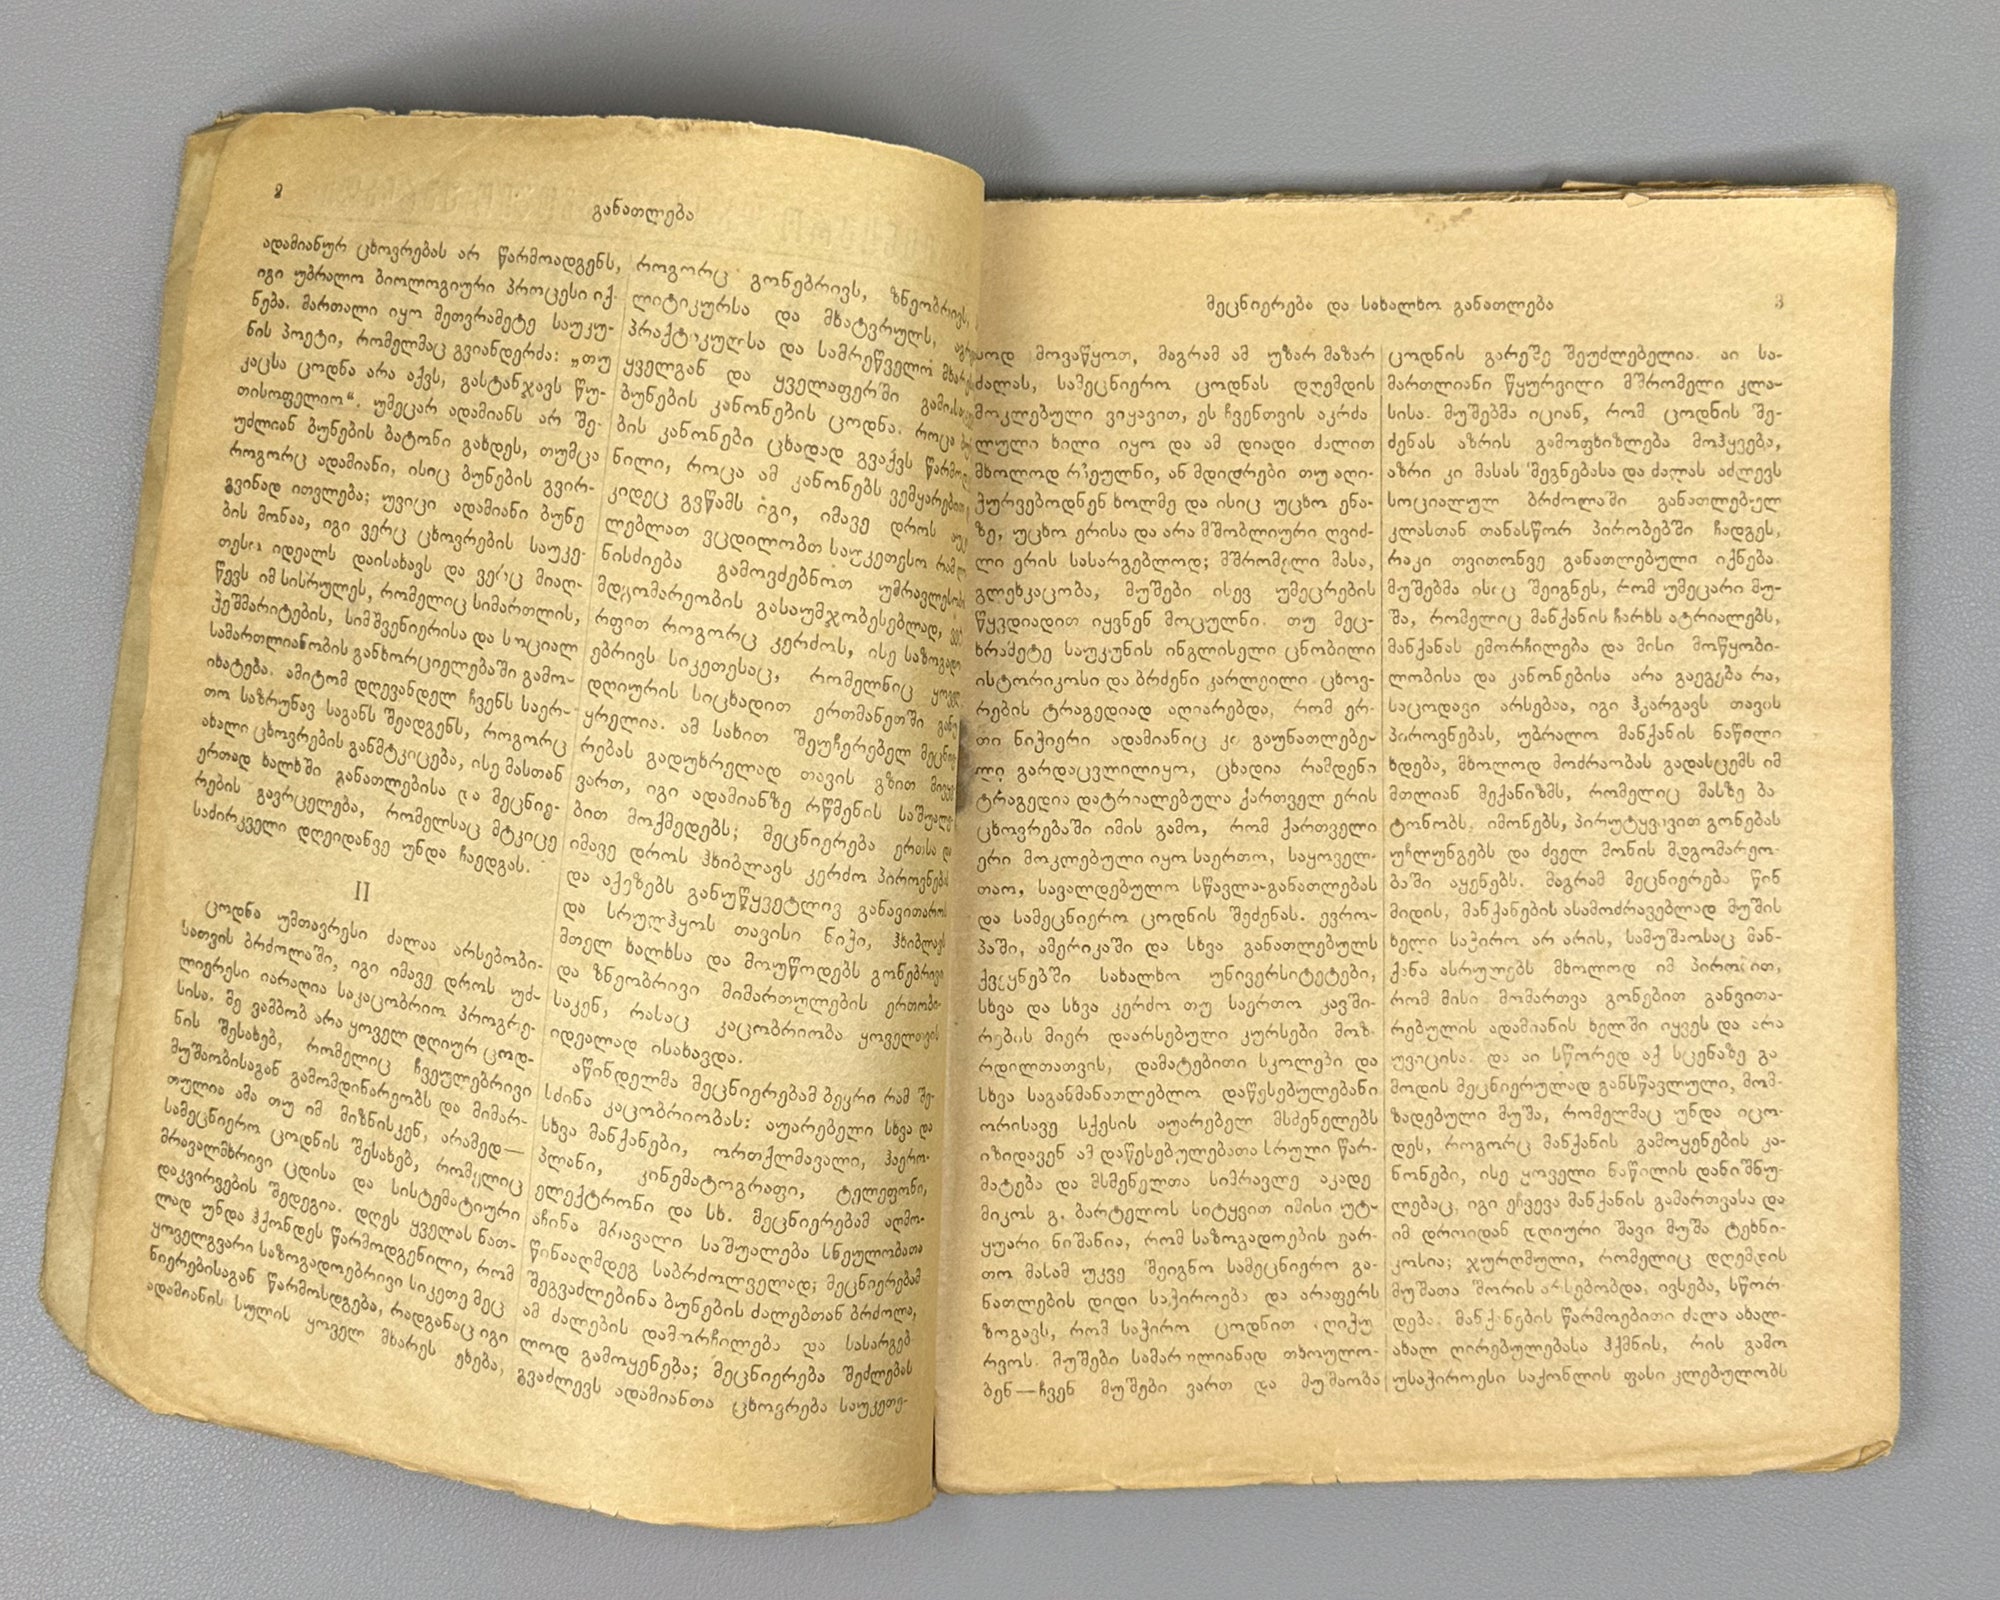 2
განათლება
ადამიანურ ცხოვრებას არ წარმოადგენს,
იგი უბრალო ბიოლოგიური პროცესი იქ-
ნება. მართალი იყო მეთვრამეტე საუკუ-
ნის პოეტი, რომელმაც გვიანდერძა: „თუ
კაცსა ცოდნა არა აქვს, გასტანჯავს წუ-
თისოფელიო“. უმეცარ ადამიანს არ შე-
უძლიან ბუნების ბატონი გახდეს, თუმცა
როგორც ადამიანი, ისიც ბუნების გვირ-
გვინად ითვლება; უვიცი ადამიანი ბუნე
ბის მონაა, იგი ვერც ცხოვრების საუკე-
თესო იდეალს დაისახავს და ვერც მიაღ-
წევს იმ სისრულეს, რომელიც სიმართლის,
ჭეშმარიტების, სიმშვენიერისა და სოციალ
სამართლიანობის განხორციელებაში გამო-
იხატება. ამიტომ დღევანდელ ჩვენს საერ-
თო საზრუნავ საგანს შეადგენს, როგორც
ახალი ცხოვრების განმტკიცება, ისე მასთან
ერთად ხალხში განათლებისა და მეცნიე-
რების გავრცელება, რომელსაც მტკიცე
საძირკველი დღეიდანვე უნდა ჩაედგას.
II
ცოდნა უმთავრესი ძალაა არსებობი-
სათვის ბრძოლაში, იგი იმავე დროს უძ-
ლიერესი იარაღია საკაცობრიო პროგრე-
სისა. მე ვამბობ არა ყოველ დღიურ ცოდ-
ნის შესახებ, რომელიც ჩვეულებრივი
მუშაობისაგან გამომდინარეობს და მიმარ-
თულია ამა თუ იმ მიზნისკენ, არამედ—
სამეცნიერო ცოდნის შესახებ, რომელიც
მრავალმხრივი ცდისა და სისტემატიური
დაკვირვების შედეგია. დღეს ყველას ნათ-
ლად უნდა ჰქონდეს წარმოდგენილი, რომ
ყოველგვარი საზოგადოებრივი სიკეთე მეც
ნიერებისაგან წარმოსდგება, რადგანაც იგი
ადამიანის სულის ყოველ მხარეს ეხება,
როგორც გონებრივს, ზნეობრივს,
ლიტიკურსა და მხატვრულს,
პრაქტიკულსა და სამრეწველო
ყველგან და ყველაფერში
ბუნების კანონების ცოდნა. როცა
ბის კანონები ცხადად გვაქვს
ნილი, როცა ამ კანონებს ვემყარებით,
კიდეც გვწამს იგი, იმავე დროს
ლებლათ ვცდილობთ საუკეთესო
ნისძიება გამოვძებნოთ უმრავლესობის
მდგომარეობის გასაუმჯობესებლად,
რფით როგორც კერძოს, ისე
ებრივს სიკეთესაც, რომელნიც
დღიურის სიცხადით ერთმანეთში
ყრელია. ამ სახით შეუჩერებელ
რებას გადუხრელად თავის გზით
ვართ, იგი ადამიანზე რწმენის
ბით მოქმედებს; მეცნიერება ერთსა და
იმავე დროს ჰხიბლავს კერძო პიროვნებას
და აქეზებს განუწყვეტლივ განავითაროს
და სრულჰყოს თავისი ნიჭი, ჰხიბლავს
მთელ ხალხსა და მოუწოდებს გონებრივი
და ზნეობრივი მიმართულების ერთობი-
საკენ, რასაც კაცობრიობა ყოველთვის
იდეალად ისახავდა.
აწინდელმა მეცნიერებამ ბევრი რამ შე-
სძინა კაცობრიობას: აუარებელი სხვა და
სხვა მანქანები, ორთქლმავალი, ჰაერო-
პლანი, კინემატოგრაფი, ტელეფონი,
ელექტრონი და სხ. მეცნიერებამ აღმო-
აჩინა მრავალი საშუალება სნეულობათა
წინააღმდეგ საბრძოლველად; მეცნიერებამ
შეგვაძლებინა ბუნების ძალებთან ბრძოლა,
ამ ძალების დამორჩილება და სასარგებ
ლოდ გამოყენება; მეცნიერება შეძლებას
გვაძლევს ადამიანთა ცხოვრება საუკეთე-
მეცნიერება და სახალხო განათლება
3
სოდ მოვაწყოთ, მაგრამ ამ უზარ მაზარ
ძალას, სამეცნიერო ცოდნას დღემდის
მოკლებული ვიყავით, ეს ჩვენთვის აკრძა
ლული ხილი იყო და ამ დიადი ძალით
მხოლოდ რჩეულნი, ან მდიდრები თუ აღი-
ჭურვებოდნენ ხოლმე და ისიც უცხო ენა-
ზე, უცხო ერისა და არა მშობლიური ღვიძ-
ლი ერის სასარგებლოდ; მშრომელი მასა,
გლეხკაცობა, მუშები ისევ უმეცრების
წყვდიადით იყვნენ მოცულნი. თუ მეც-
ხრამეტე საუკუნის ინგლისელი ცნობილი
ისტორიკოსი და ბრძენი კარლეილი ცხოვ-
რების ტრაგედიად აღიარებდა, რომ ერ-
თი ნიჭიერი ადამიანიც კი გაუნათლებე-
ლი გარდაცვლილიყო, ცხადია რამდენი
ტრაგედია დატრიალებულა ქართველ ერის
ცხოვრებაში იმის გამო, რომ ქართველი
ერი მოკლებული იყო საერთო, საყოველ-
თაო, სავალდებულო სწავლა-განათლებას
და სამეცნიერო ცოდნის შეძენას. ევრო-
პაში, ამერიკაში და სხვა განათლებულს
ქვეყნებში სახალხო უნივერსიტეტები,
სხვა და სხვა კერძო თუ საერთო კავში-
რების მიერ დაარსებული კურსები მოზ-
რდილთათვის, დამატებითი სკოლები და
სხვა საგანმანათლებლო დაწესებულებანი
ორისავე სქესის აუარებელ მსმენელებს
იზიდავენ ამ დაწესებულებათა სრული წარ-
მატება და მსმენელთა სიმრავლე აკადე
მიკოს გ. ბარტელოს სიტყვით იმისი უტ-
ყუარი ნიშანია, რომ საზოგადოების ფარ-
თო მასამ უკვე შეიგნო სამეცნიერო გა-
ნათლების დიდი საჭიროება და არაფერს
ზოგავს, რომ საჭირო ცოდნით აღიჭუ
რვოს. მუშები სამართლიანად თხოულო-
ბენ—ჩვენ მუშები ვართ და მუშაობა
ცოდნის გარეშე შეუძლებელია. აი სა-
მართლიანი წყურვილი მშრომელი კლა-
სისა. მუშებმა იციან, რომ ცოდნის შე-
ძენას აზრის გამოფხიზლება მოჰყვება,
აზრი კი მასას შეგნებასა და ძალას აძლევს
სოციალულ ბრძოლაში განათლებულ
კლასთან თანასწორ პირობებში ჩადგეს,
რაკი თვითონვე განათლებული იქნება.
მუშებმა ისიც შეიგნეს, რომ უმეცარი მუ-
შა, რომელიც მანქანის ჩარხს ატრიალებს,
მანქანას ემორჩილება და მისი მოწყობი-
ლობისა და კანონებისა არა გაეგება რა,
საცოდავი არსებაა, იგი ჰკარგავს თავის
პიროვნებას, უბრალო მანქანის ნაწილი
ხდება, მხოლოდ მოძრაობას გადასცემს იმ
მთლიან მექანიზმს, რომელიც მასზე ბა
ტონობს, იმონებს, პირუტყვივით გონებას
უჩლუნგებს და ძველ მონის მდგომარეო-
ბაში აყენებს. მაგრამ მეცნიერება წინ
მიდის, მანქანების ასამოძრავებლად მუშის
ხელი საჭირო არ არის, სამუშაოსაც მან-
ქანა ასრულებს მხოლოდ იმ პირობით,
რომ მისი მომართვა გონებით განვითა-
რებულის ადამიანის ხელში იყვეს და არა
უვიცისა. და აი სწორედ აქ სცენაზე გა
მოდის მეცნიერულად განსწავლული, მომ-
ზადებული მუშა, რომელმაც უნდა იცო-
დეს, როგორც მანქანის გამოყენების კა-
ნონები, ისე ყოველი ნაწილის დანიშნუ-
ლებაც, იგი ეჩვევა მანქანის გამართვასა და
იმ დროიდან დღიური შავი მუშა ტეხნი-
კოსია; ჯურღმული, რომელიც დღემდის
მუშათა შორის არსებობდა, ივსება, სწორ-
დება. მანქანების წარმოებითი ძალა ახალ-
ახალ ღირებულებასა ჰქმნის, რის გამო
უსაჭიროესი საქონლის ფასი კლებულობს